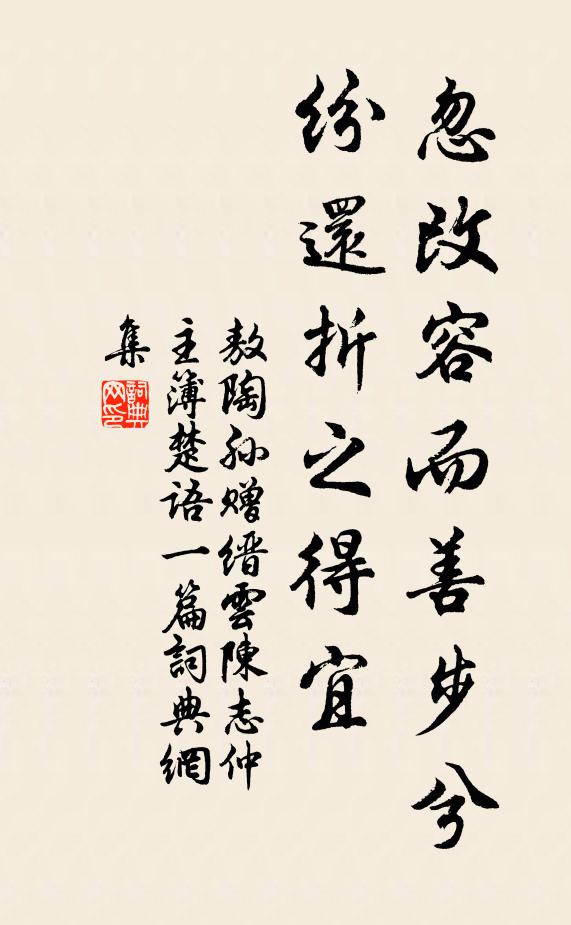 忽改容而善步兮
紛還折之得宜
敖陶孫赠缙雲陳志仲
主簿楚语一篇詞典網
集
詞典网印